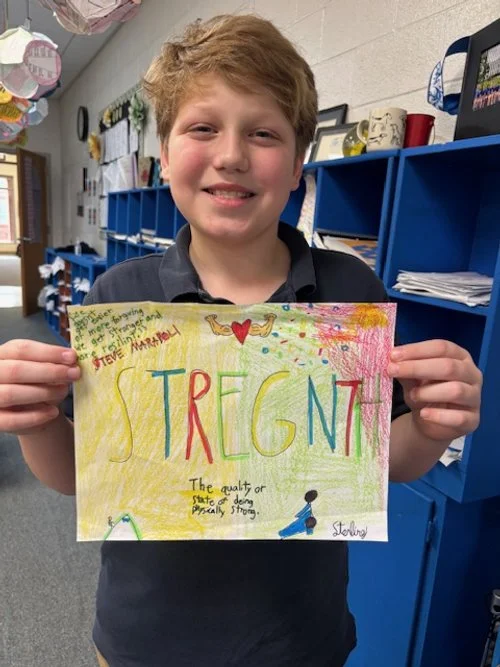 or more forgiving
we get stronger and
more resilient
STEVE MARABOLI
STREGNTH
The quality or
state of being
physically strong.
Sterling